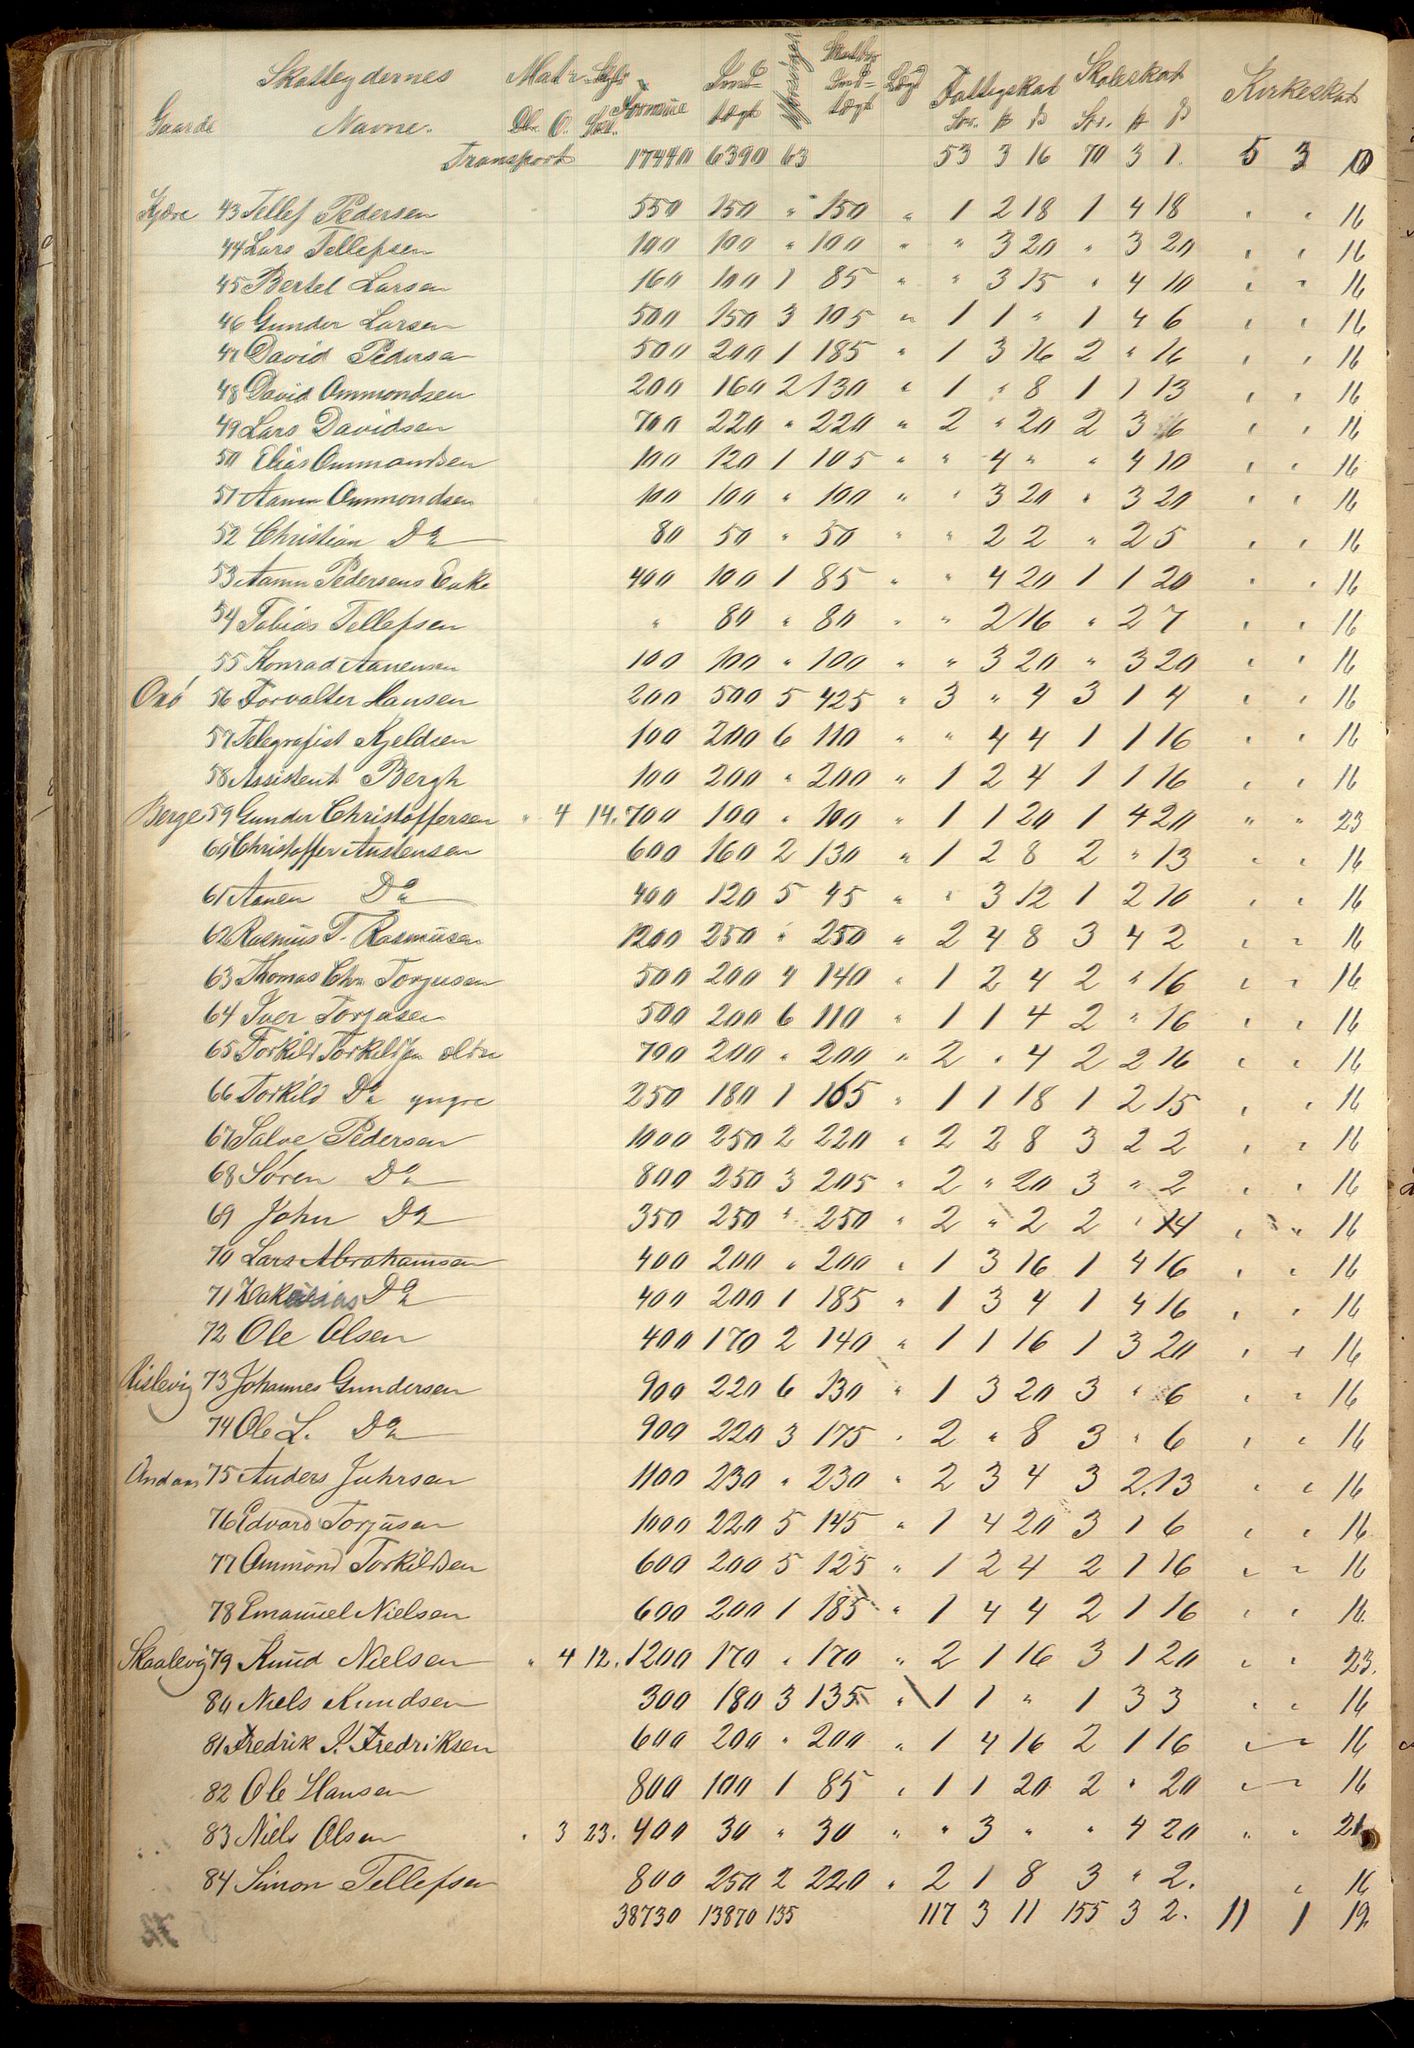 Gaarde Skatteydernes Navne. Matr Skyld Dlr. O. Skl. Formue Indtægt Forsörget Skatbar Indtægt Lægd Fattigskat Skoleskat Kirkeskat
Spr. ₰ ß Spr. ₰ ß
Transport 17440 6390 63 53 3 16 70 3 1. 5 3 10
Kjøre 43 Tellef Pedersen 550 150 " 150 " 1 2 18 1 4 18 " " 16
44 Lars Tellefsen 100 100 " 100 " " 3 20 " 3 20 " " 16
45 Bertel Larsen 160 100 1 85 " " 3 15 " 4 10 " " 16
46 Gunder Larsen 500 150 3 105 " 1 1 " 1 4 6 " " 16
47 David Pedersen 500 200 1 185 " 1 3 16 2 " 16 " " 16
48 David Ommondsen 200 160 2 130 " 1 " 8 1 1 13 " " 16
49 Lars Davidsen 700 220 " 220 " 2 " 20 2 3 6 " " 16
50 Elias Ommondsen 100 120 1 105 " " 4 " " 4 10 " " 16
51 Aanen Ommondsen 100 100 " 100 " " 3 20 " 3 20 " " 16
52 Christian Do 80 50 " 50 " " 2 2 " 2 5 " " 16
53 Aanen Pedersens Enke 400 100 1 85 " " 4 20 1 1 20 " " 16
54 Tobias Tellefsen " 80 " 80 " " 2 16 " 2 7 " " 16
55 Konrad Aanensen 100 100 " 100 " " 3 20 " 3 20 " " 16
Oxö 56 Forvalter Hansen 200 500 5 425 " 3 " 4 3 1 4 " " 16
57 Telegrafist Kjeldsen 100 200 6 110 " " 4 4 1 1 16 " " 16
58 Assistent Bergh 100 200 " 200 " 1 2 4 1 1 16 " " 16
Berge 59 Gunder Christoffersen " 4 14. 700 100 " 100 " 1 1 20 1 4 20 " " 23
60 Christoffer Austensen 600 160 2 130 " 1 2 8 2 " 13 " " 16
61 Aanen Do 400 120 5 45 " " 3 12 1 2 10 " " 16
62 Rasmus T. Rasmusen 1200 250 " 250 " 2 4 8 3 4 2 " " 16
63 Thomas Chr Torjusen 500 200 4 140 " 1 2 4 2 " 16 " " 16
64 Iver Torjusen 500 200 6 110 " 1 1 4 2 " 16 " " 16
65 Torkild Torkildsen eldre 700 200 " 200 " 2 " 4 2 2 16 " " 16
66 Torkild Do yngre 250 180 1 165 " 1 1 18 1 2 15 " " 16
67 Salve Pedersen 1000 250 2 220 " 2 2 8 3 2 2 " " 16
68 Søren Do 800 250 3 205 " 2 " 20 3 " 2 " " 16
69 John Do 350 250 " 250 " 2 " 2 2 " 14 " " 16
70 Lars Abrahamsen 400 200 " 200 " 1 3 16 1 4 16 " " 16
71 Zakarias Do 400 200 1 185 " 1 3 4 1 4 16 " " 16
72 Ole Olsen 400 170 2 140 " 1 1 16 1 3 20 " " 16
Rislevig 73 Johannes Gundersen 900 220 6 130 " 1 3 20 3 " 6 " " 16
74 Ole L. Do 900 220 3 175 " 2 " 8 3 " 6 " " 16
Andaas 75 Anders Juhrsen 1100 230 " 230 " 2 3 4 3 2.13 " " 16
76 Edvard Torjusen 1000 220 5 145 " 1 4 20 3 1 6 " " 16
77 Ommond Torkildsen 600 200 5 125 " 1 2 4 2 1 16 " " 16
78 Emanuel Nielsen 600 200 1 185 " 1 4 4 2 1 16 " " 16.
Skaalevig 79 Knud Nielsen " 4 12. 1200 170 " 170 " 2 1 16 3 1 20 " " 23.
80 Niels Knudsen 300 180 3 135 " 1 1 " 1 3 3 " " 16
81 Fredrik P. Fredriksen 600 200 " 200 " 1 4 16 2 1 16 " " 16
82 Ole Hansen 800 100 1 85 " 1 1 20 2 " 20 " " 16
83 Niels Olsen " 3 23. 400 30 " 30 " " 3 " " 4 20 " " 21
84 Simon Tellefsen 800 250 2 220 " 2 1 8 3 " 2. " 16
38730 13870 135 117 3 11 155 3 2. 11 1 19